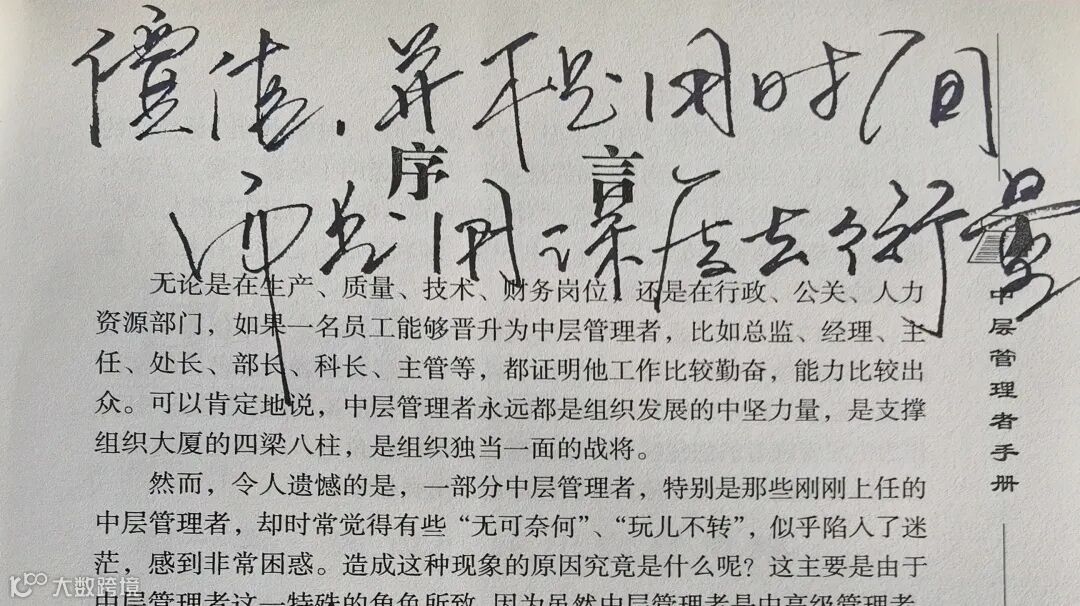 價值,并不是用时间
序言
而是用深度去衡量
无论是在生产、质量、技术、财务岗位,还是在行政、公关、人力
资源部门,如果一名员工能够晋升为中层管理者,比如总监、经理、主
任、处长、部长、科长、主管等,都证明他工作比较勤奋,能力比较出
众。可以肯定地说,中层管理者永远都是组织发展的中坚力量,是支撑
组织大厦的四梁八柱,是组织独当一面的战将。
然而,令人遗憾的是,一部分中层管理者,特别是那些刚刚上任的
中层管理者,却时常觉得有些“无可奈何”、“玩儿不转”,似乎陷入了迷
茫,感到非常困惑。造成这种现象的原因究竟是什么呢?这主要是由于
中层管理者这一特殊的角色所致,因为虽然中层管理者是中高级管理者,
中层管理者手册
大数跨境